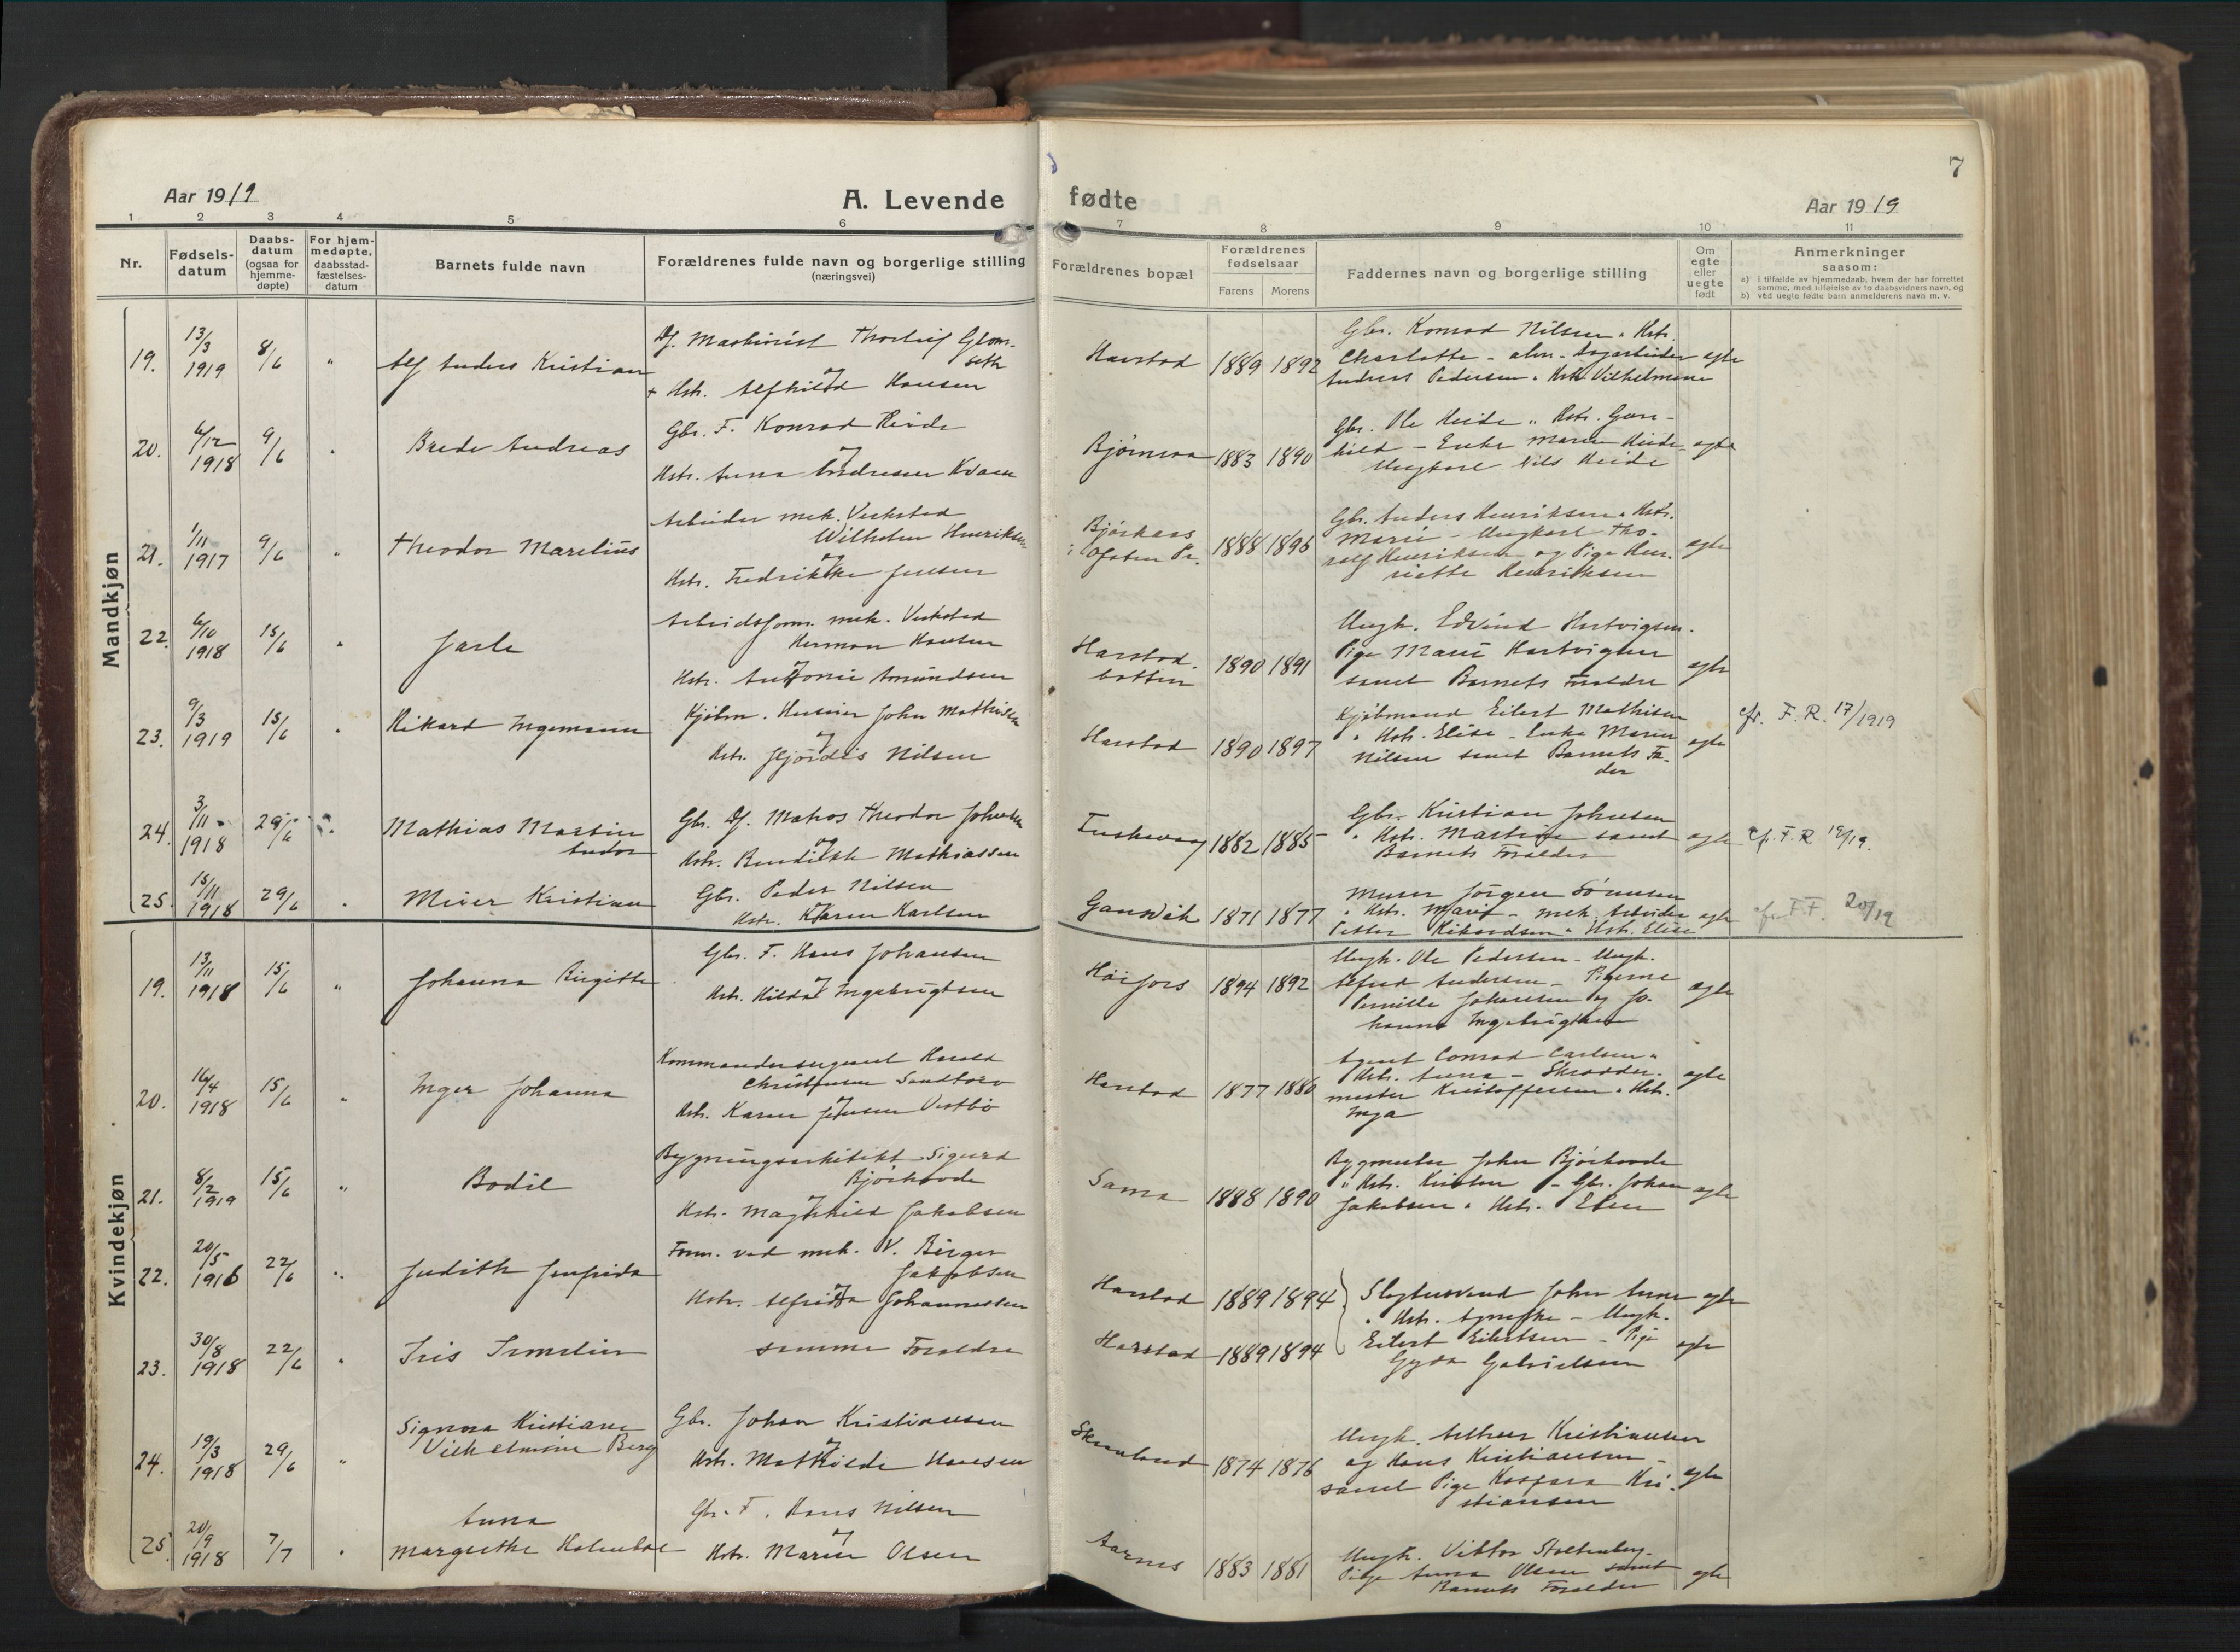 7
Aar 1919
A. Levende
fødte
Aar 1919
1 2 3 4 5 6 7 8 9 10 11
Nr.
Fødsels-
datum
Daabs-
datum
(ogsaa for
hjemme-
døpte)
For hjem-
medøpte,
daabsstad-
fæstelses-
datum
Barnets fulde navn
Forældrenes fulde navn og borgerlige stilling
(næringsvei)
Forældrenes bopæl
Forældrenes
fødselsaar
Farens Morens
Faddernes navn og borgerlige stilling
Om
egte
eller
uegte
født
Anmerkninger
saasom:
a) i tilfælde av hjemmedaab, hvem der har forrettet
samme, med tilføielse av to daabsvidners navn, og
b) ved uegte fødte barn anmelderens navn m. v.
Mandkjøn
19. 13/3 1919 8/6 " Alf Anders Kristian
Maskinist Thorleif Glom-
seth
Hstr. Alfhild Hansen
Harstad 1889 1892
Gbr. Konrad Nilsen " Hstr.
Charlotte -
Anders Pedersen " Hstr. Vilhelmine
egte
20. 6/12 1918 9/6 " Brede Andreas
Gbr. F. Konrad Heide
Hstr. Anna Andresen Kvam
1883 1890
Gbr. Ole Heide " Hstr. Gun-
hild - Enke Maren Heide -
Ungkarl Nils Heide
egte
21. 1/11 1917 9/6 " Theodor Marelius
Arbeider mek. Verksted
Wilhelm Henriksen
Hstr. Fredrikke Jensen
Bjørkaas
i Ofoten Pr.
1888 1896
Gbr. Anders Henriksen " Hstr.
Marie - Ungkarl Tho-
ralf Henriksen og Pige Hen-
riette Henriksen
egte
22. 6/10 1918 15/6 " Jarle
Arbeidsform. mek. Verksted
Herman Hansen
Hstr. Antonie Amundsen
Harstad-
botten
1890 1891
Ungk. Edvind Hartvigsen -
Pige Marie Hartvigsen
samt Barnets Forældre
egte
23. 9/3 1919 15/6 " Rikard Ingemann
Kjøbm. John Mathisen
Hstr. Hjørdis Nilsen
Harstad 1890 1897
Kjøbmand Eilert Mathisen
" Hstr. Elise - Enke Maren
Nilsen samt Barnets Fa-
der
egte
cfr. F. R. 17/1919
24. 3/11 1918 29/6 " Mathias Martin
Andor
Gbr. Matros Theodor Johnsen
Hstr. Bendikte Mathiassen
1882 1885
Gbr. Kristian Johnsen
" Hstr. samt
Barnets Forældre
egte
cf. F. R. 19/19.
25. 15/11 1918 29/6 " Meier Kristian
Gbr. Peder Nilsen
Hstr. Karen Karlsen
Gansvik 1871 1877
Murer Jørgen Sørensen
" Hstr. Marie - mek. Arbeider
Petter Rikardsen " Hstr. Elise
egte
20/19
Kvindekjøn
19. 13/11 1918 15/6 " Johanna Birgitte
Gbr. F. Hans Johansen
Hstr. Hilda Ingebrigtsen
Høifors 1894 1892
Ungk. Ole Pedersen - Ungk.
Alfred Andersen - Pigerne
Pernille Johansen og Jo-
hanna Ingebrigtsen
egte
20. 16/4 1918 15/6 " Inger Johanna
Kommandersergeant Harald
Christensen Sandtorv
Hstr. Karen Jensen Vestbø
Harstad 1877 1880
Agent Conrad Carlsen "
Hstr. Anna - Skrædder-
mester Kristoffersen " Hstr.
Inga
egte
21. 8/2 1919 15/6 " Bodil
Bygningsarkitekt Sigurd
Bjørkovde
Hstr. Magnhild Jakobsen
Sama 1888 1890
Bygmester John Bjørkovde
" Hstr. Kirsten - Gbr. Johan
Jakobsen " Hstr. Elen
egte
22. 20/5 1916 22/6 " Judith Jenfrida
Form. ved mek. V. Birger
Jakobsen
Hstr. Alfrida Johannessen
Harstad 1889 1894
John Arne
" Hstr. - Ungk.
Eilert Eilertsen - Pige
Gyda Gabrielsen
egte
23. 30/8 1918 22/6 " Iris Irmelin
samme Forældre
Harstad 1889 1894
egte
24. 19/3 1918 29/6 " Signora Kristiane
Vilhelmine Berg
Gbr. Johan Kristiansen
Hstr. Mathilde Hansen
1874 1876
Ungk. Arthur Kristiansen
og Hans Kristiansen -
samt Pige Kaspara Kri-
stiansen
egte
25. 20/9 1918 7/7 " Anna
Margrethe Holmboe
Gbr. F. Hans Nilsen
Hstr. Maren Olsen
Aarnes 1883 1881
Ungk. Viktor Stoltenberg -
Pige Anna Olsen samt
Barnets Forældre
egte